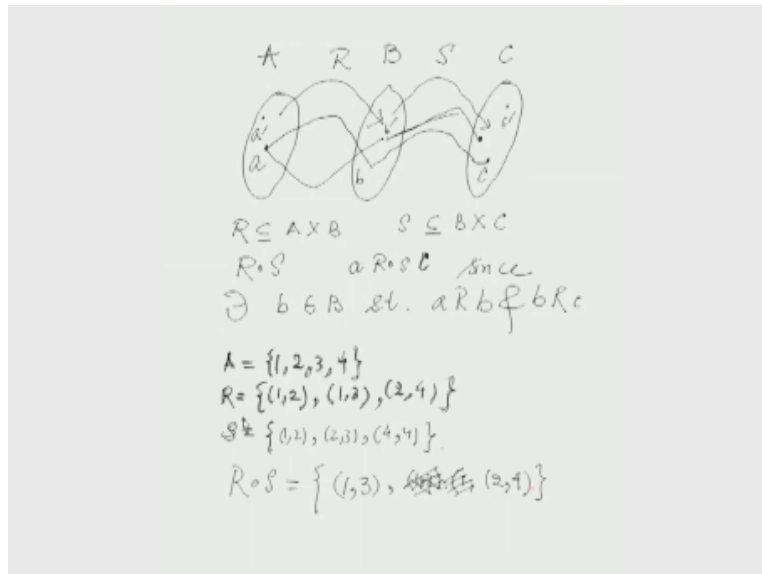 A R B S C
a'
a b c
R ⊆ A × B S ⊆ B × C
R∘S a R∘S C since
∃ b ∈ B st. a R b & b R c
A = {1, 2, 3, 4}
R = {(1,2), (1,3), (2,4)}
S = {(1,2), (2,3), (4,4)}.
R∘S = { (1,3), (2,4)}